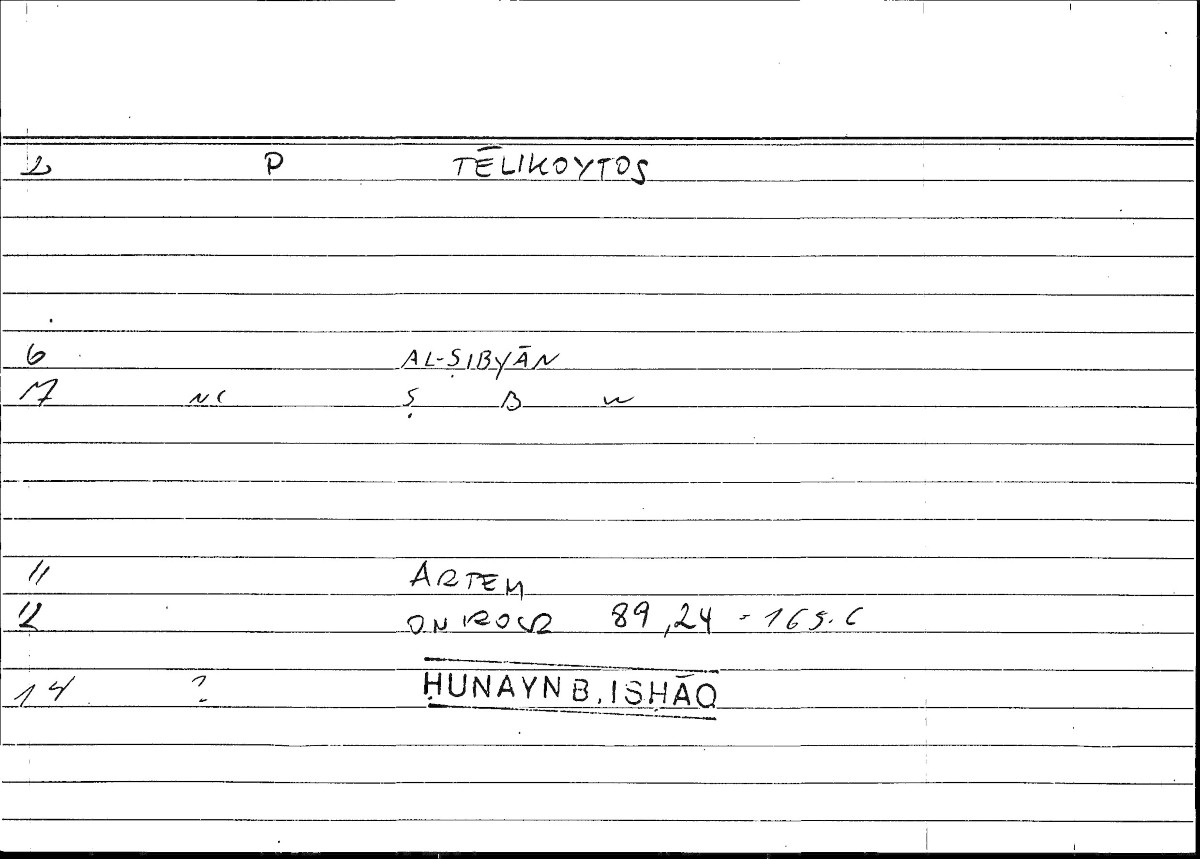 2 P TĒLIKOYTOS
6 AL-ṢIBYĀN
7 NC Ṣ B W
11 ARTEM
12 ONIROCR 89,24 - 165.6
14 ? ḤUNAYN B. ISḤĀQ